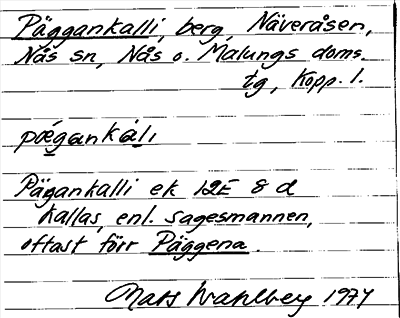 Päggankalli, berg, Näveråsen,
Nås sn, Nås o. Malungs doms.
tg, Kopp. l.
pǽgankáli
Pägankalli ek 12E 8 d
kallas, enl. sagesmannen,
oftast förr Päggena.
Mats Wahlberg 1974